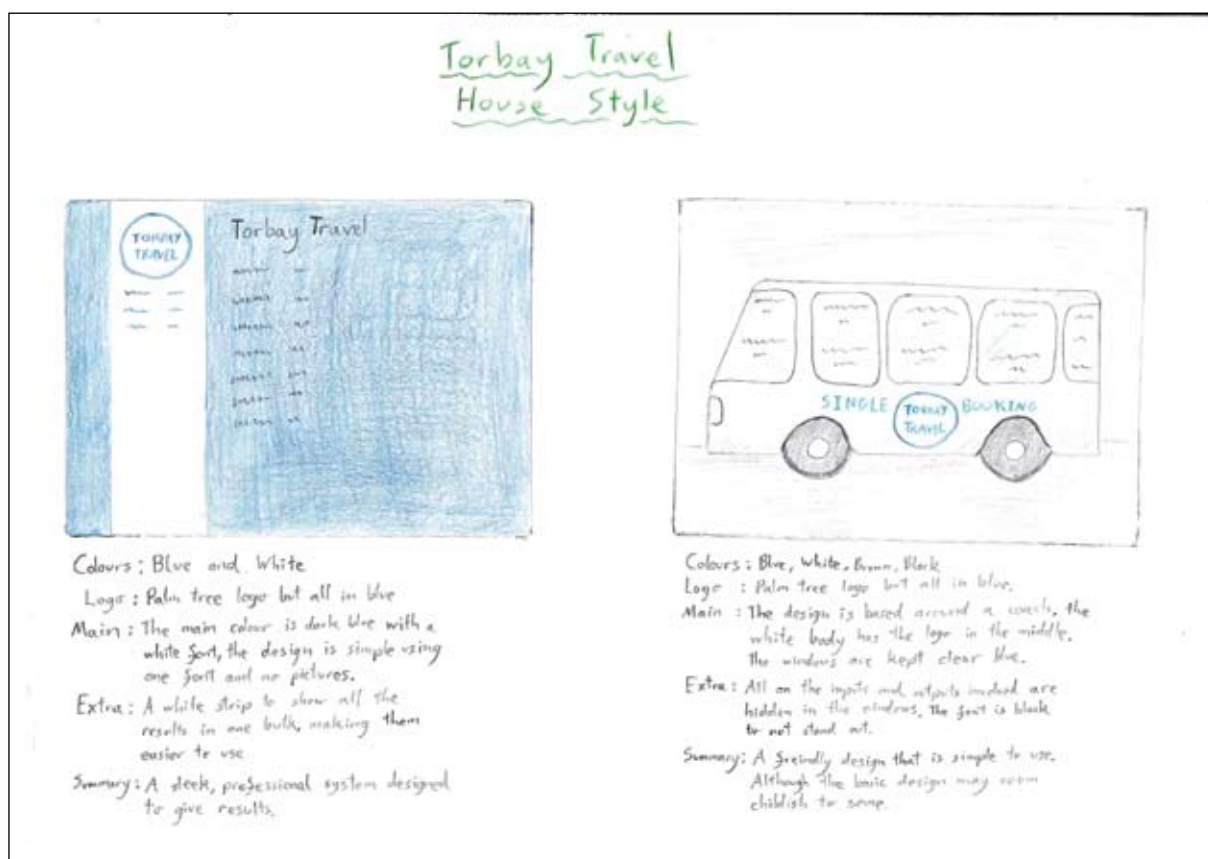 Torbay Travel
House Style
TORBAY
TRAVEL
Torbay Travel
Colours : Blue and White
Logo : Palm tree logo but all in blue
Main : The main colour is dark blue with a
white font, the design is simple using
one font and no pictures.
Extra : A white strip to show all the
results in one bulk, making them
easier to use
Summary : A sleek, professional system designed
to give results.
SINGLE TORBAY BOOKING
TRAVEL
Colours : Blue, White, Brown, Black
Logo : Palm tree logo but all in blue.
Main : The design is based around a coach, the
white body has the logo in the middle.
The windows are kept clear blue.
Extra : All on the inputs and outputs involved are
hidden in the windows. The font is black
to not stand out.
Summary : A freindly design that is simple to use.
Although the basic design may seem
childish to some.